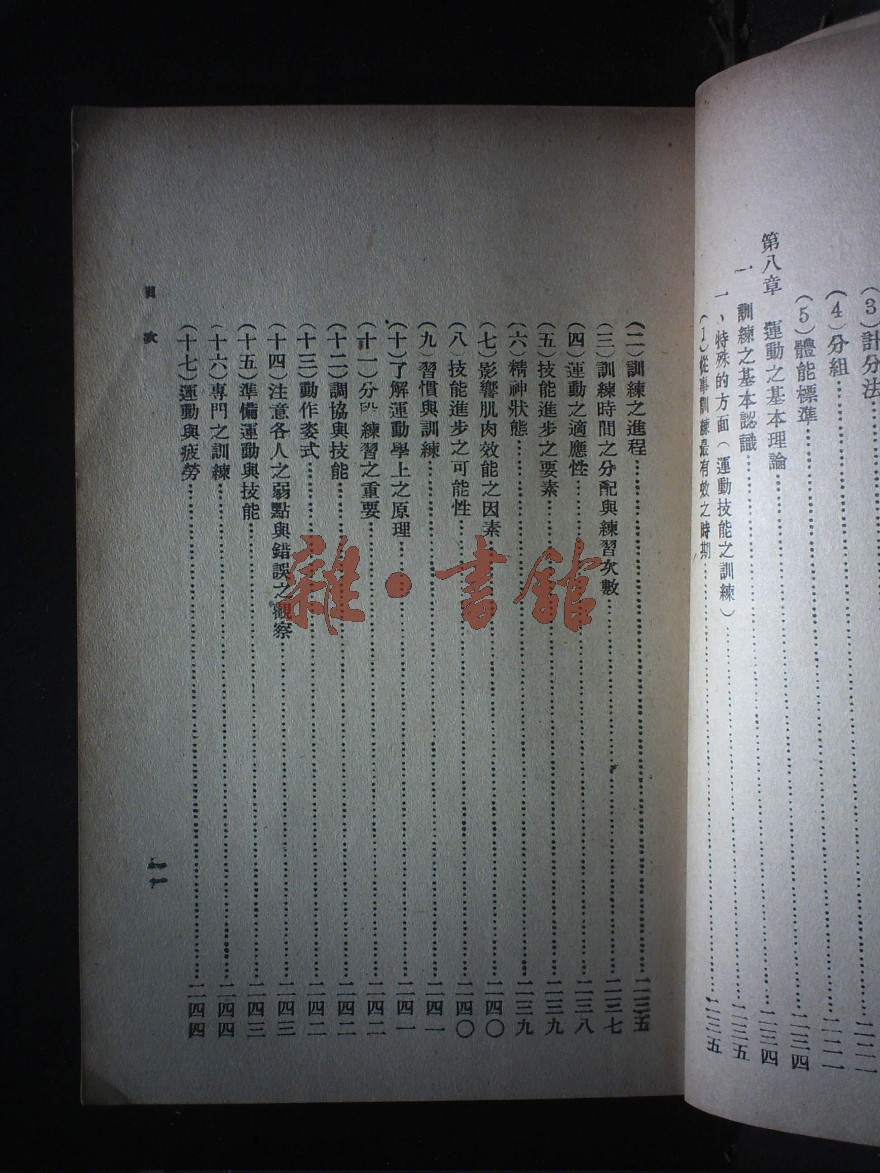 (3)計分法……二二二
(4)分組……二二二
(5)體能標準……二三四
第八章　運動之基本理論……二三四
一　訓練之基本認識……二三五
一、特殊的方面(運動技能之訓練)
(1)從事訓練最有效之時期……二三五
(二)訓練之進程……二三五
(三)訓練時間之分配與練習次數……二三七
(四)運動之適應性……二三八
(五)技能進步之要素……二三九
(六)精神狀態……二三九
(七)影響肌肉效能之因素……二四〇
(八)技能進步之可能性……二四〇
(九)習慣與訓練……二四一
(十)了解運動學上之原理……二四一
(十一)分段練習之重要……二四二
(十二)調協與技能……二四二
(十三)動作姿式……二四二
(十四)注意各人之弱點與錯誤之觀察……二四三
(十五)準備運動與技能……二四三
(十六)專門之訓練……二四四
(十七)運動與疲勞……二四四
目次
一一
雜·書館